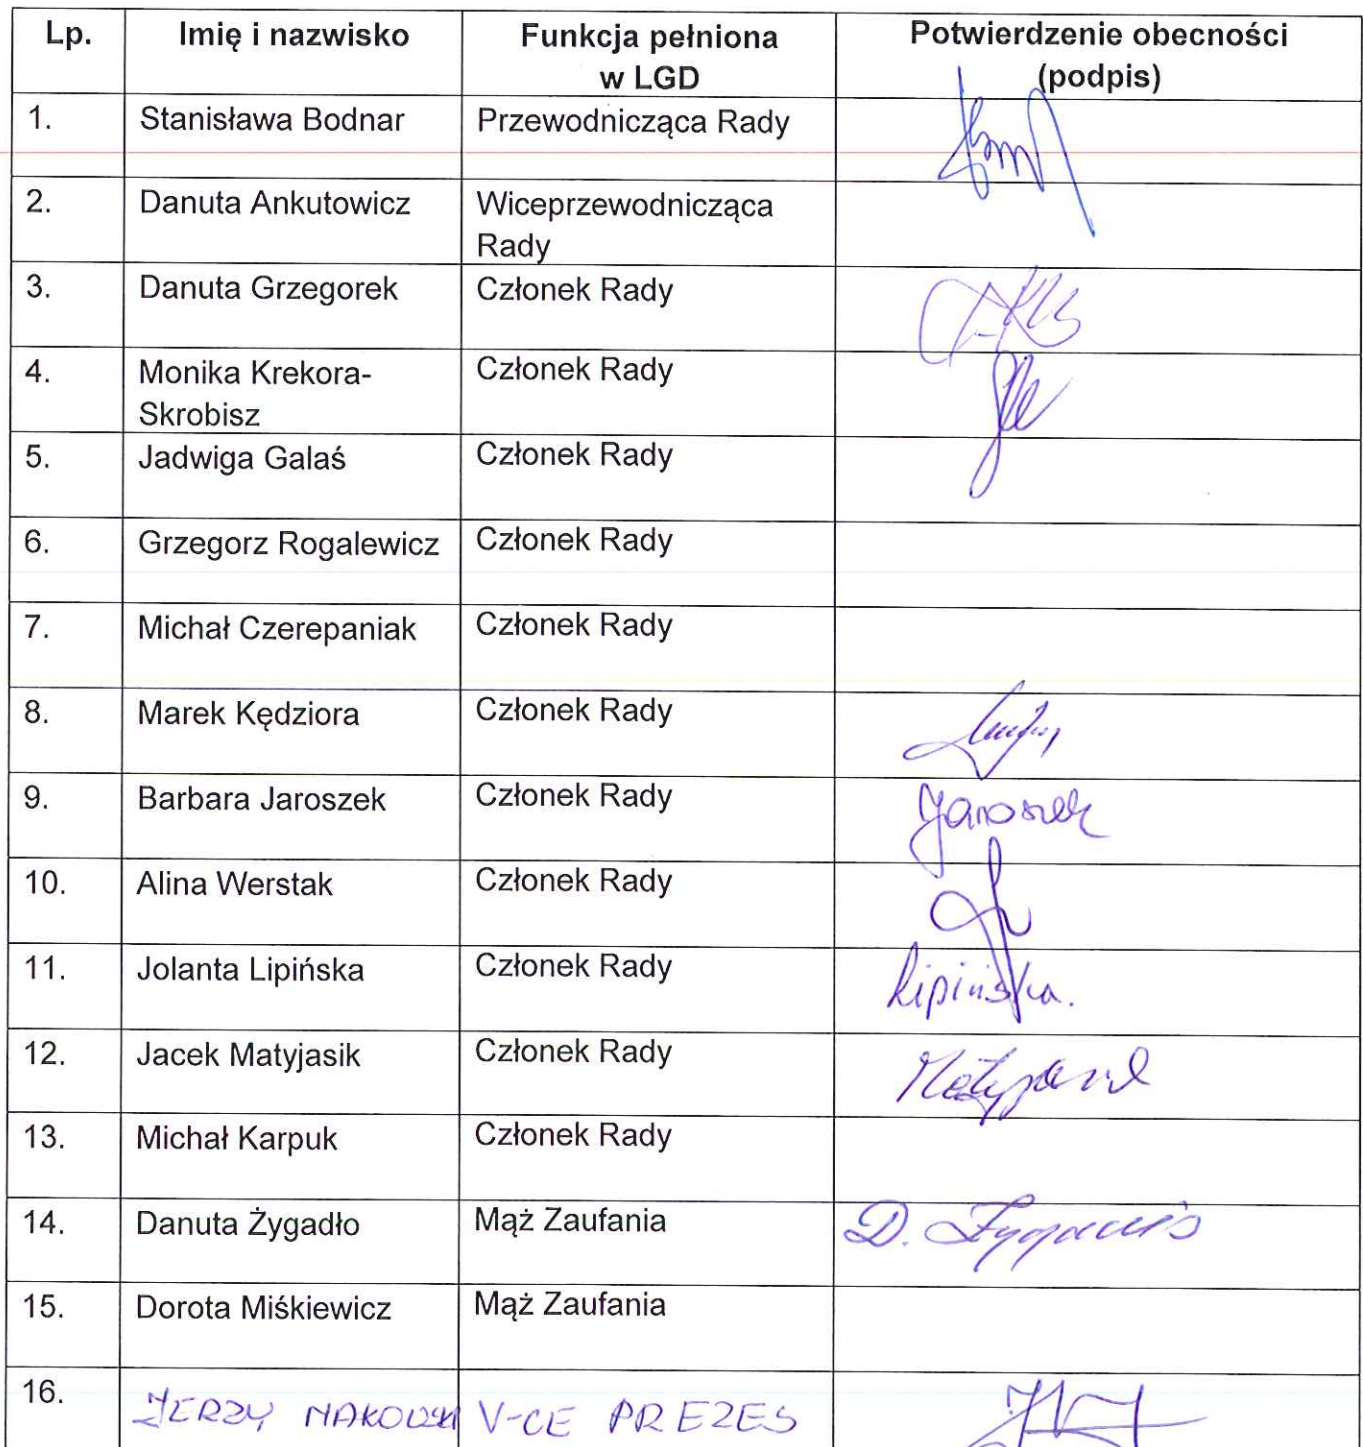 Lp. Imię i nazwisko Funkcja pełniona Potwierdzenie obecności
w LGD (podpis)
1. Stanisława Bodnar Przewodnicząca Rady
2. Danuta Ankutowicz Wiceprzewodnicząca
Rady
3. Danuta Grzegorek Członek Rady
4. Monika Krekora- Członek Rady
Skrobisz
5. Jadwiga Galaś Członek Rady
6. Grzegorz Rogalewicz Członek Rady
7. Michał Czerepaniak Członek Rady
8. Marek Kędziora Członek Rady
9. Barbara Jaroszek Członek Rady Jaroszek
10. Alina Werstak Członek Rady
11. Jolanta Lipińska Członek Rady Lipińska.
12. Jacek Matyjasik Członek Rady
13. Michał Karpuk Członek Rady
14. Danuta Żygadło Mąż Zaufania D.
15. Dorota Miśkiewicz Mąż Zaufania
16. JERZY V-CE PREZES